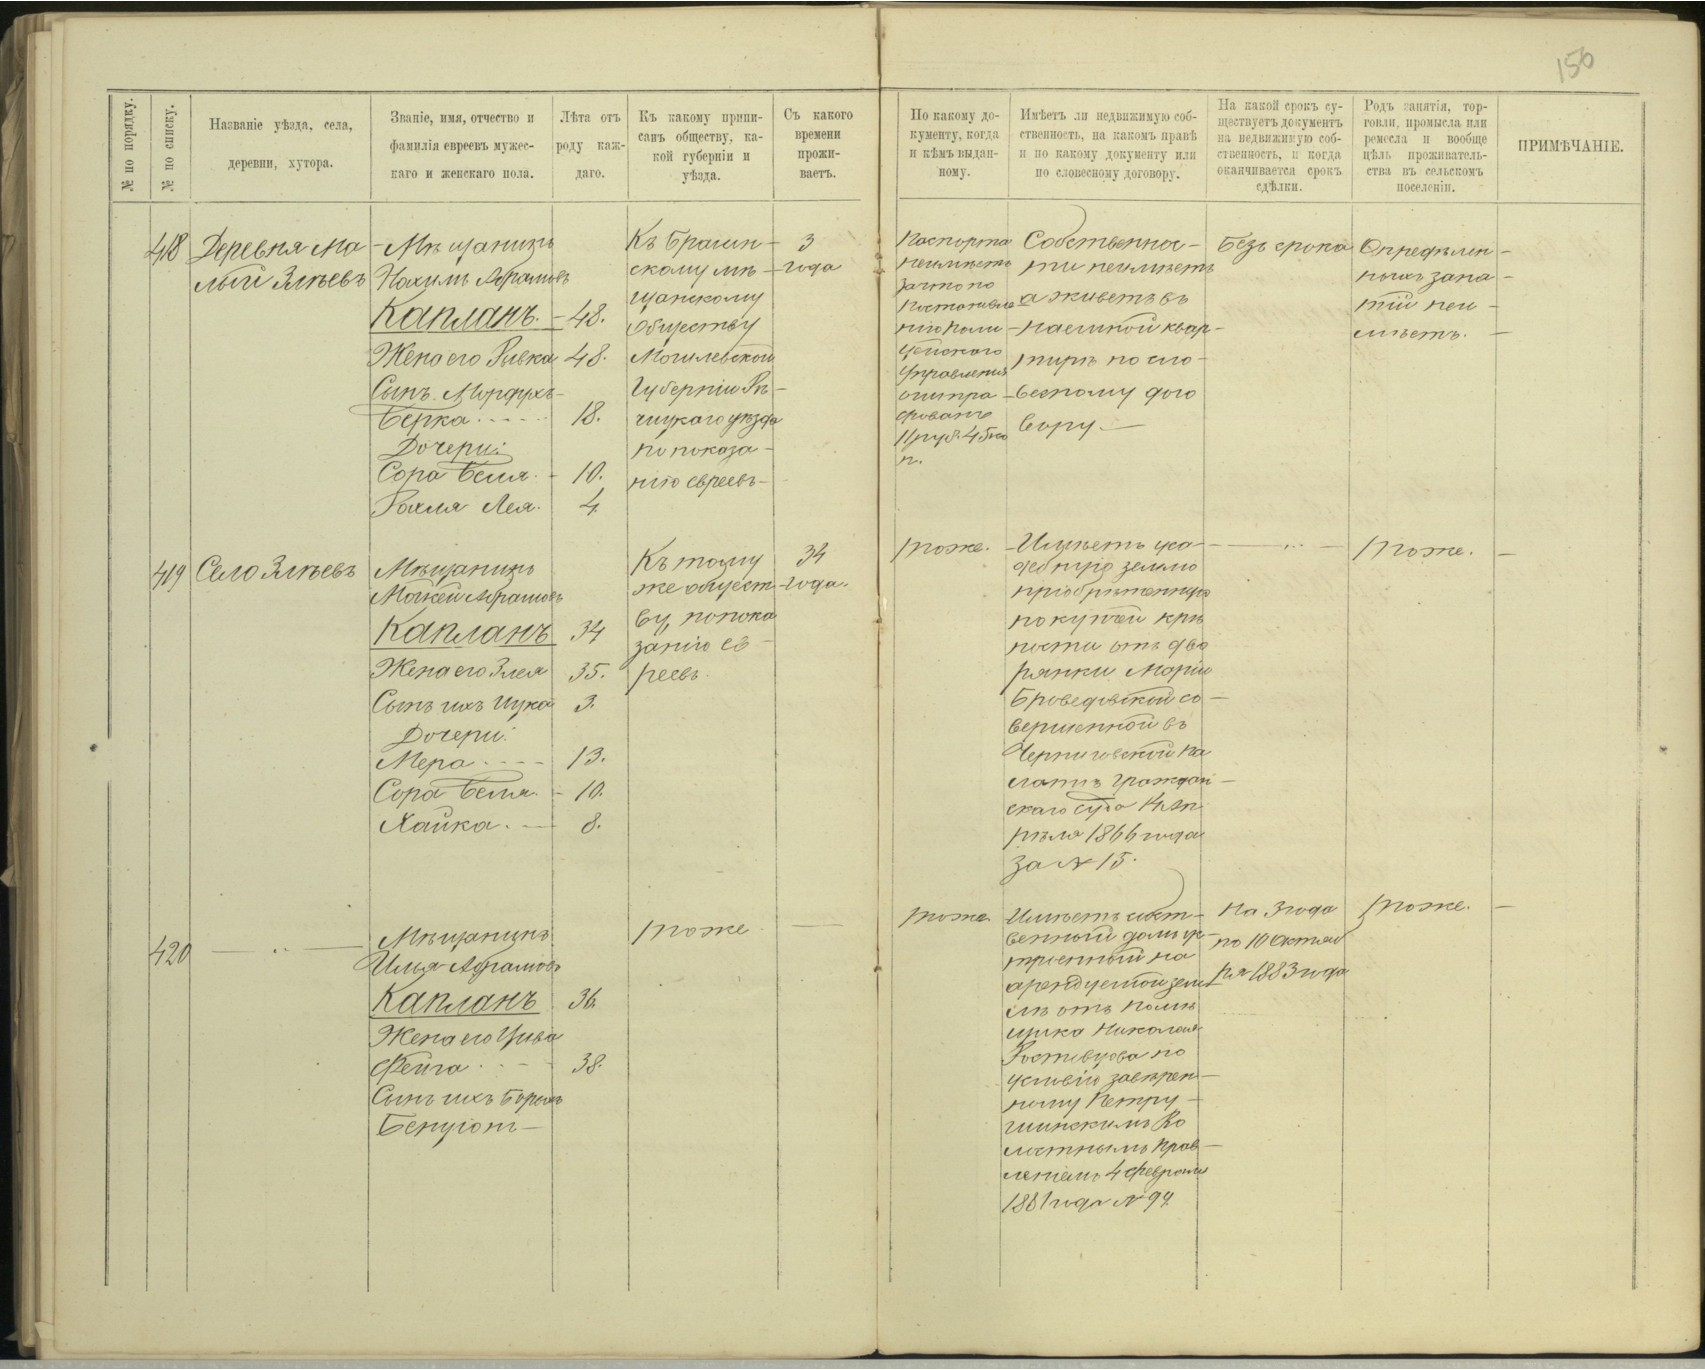 156
№ по порядку.
№ по списку.
Названіе уѣзда, села,
деревни, хутора.
Званіе, имя, отчество и
фамилія евреевъ мужес-
каго и женскаго пола.
Лѣта отъ
роду каж-
даго.
Къ какому припи-
санъ обществу, ка-
кой губерніи и
уѣзда.
Съ какого
времени
прожи-
ваетъ.
По какому до-
кументу, когда
и кѣмъ выдан-
ному.
Имѣетъ ли недвижимую соб-
ственность, на какомъ правѣ
и по какому документу или
по словесному договору.
На какой срокъ су-
ществуетъ документъ
на недвижимую соб-
ственность, и когда
оканчивается срокъ
сдѣлки.
Родъ занятія, тор-
говли, промысла или
ремесла и вообще
цѣль проживатель-
ства въ сельскомъ
поселеніи.
ПРИМѢЧАНІЕ.
418
Деревня Ма-
лый Злѣевъ
Мѣщанинъ
Нохимъ Абрамовъ
Капланъ. - 48.
Жена его Ривка 48.
Сынъ Мордухъ-
Берка 18.
Дочери:
Сора Бейля - 10.
Рохля Лея. 4
Къ Брагин-
скому мѣ-
щанскому
обществу
Могилевской
Губерніи Рѣ-
чицкаго уѣзда
по показа-
нію евреевъ-
3
года
Паспорта
неимѣетъ
зачто по
Постановле-
нію Поли-
цейскаго
Управленія
оштра-
фованъ
11 руб. 45 ко
п.
Собственнос-
ти неимѣетъ
а живетъ въ
наемной квар-
тирѣ по сло-
весному дого
вору. —
Безъ срока
Опредѣлен-
ныхъ заня-
тій неи-
мѣетъ. -
419
Село Злѣевъ
Мѣщанинъ
Мовшей Абрамовъ
Капланъ 34
Жена его Злея 35.
Сынъ ихъ Ицка 3.
Дочери:
Мера 13.
Сора Бейля. - 10.
Хайка. — 8.
Къ тому
же общест-
ву, по пока
занію ев-
реевъ.
34
года.
тоже.
Имѣетъ уса-
дебную землю
пріобрѣтенную
по купчей крѣ
пости отъ дво
рянки Маріи
со-
вершенной въ
Черниговской Па
латѣ Граждан-
скаго суда Ап
рѣля 1866 года
за № 15.
— „ —
тоже. —
420
— „ —
Мѣщанинъ
Илья Абрамовъ
Капланъ 36.
Жена его Цива
Фейга 38.
Сынъ ихъ Борухъ
тоже
—
тоже.
Имѣетъ собст-
венный домъ ус-
троенный на
арендуемой зем-
лѣ отъ Помѣ
щика Николая
Ростовцова по
условію завѣрен-
ному Петру-
шинскимъ Во
лостнымъ Прав-
леніемъ 4 Февраля
1881 года № 94.
На 3 года
по 10 Октяб
ря 1883 года
тоже. —